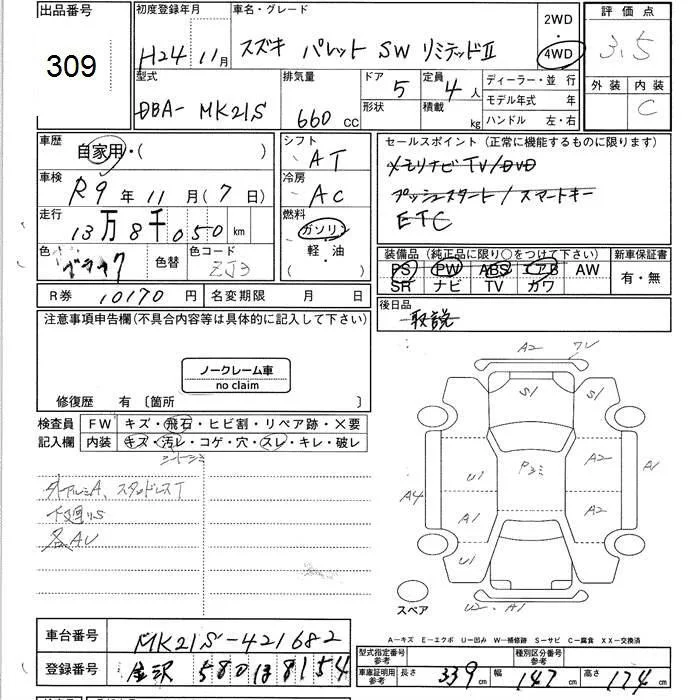 出品番号
309
初度登録年月
H24 11月
車名・グレード
スズキ パレット SW リミテッドⅡ
2WD
・
4WD
評価点
3.5
外装 内装
C
型式
DBA- MK21S
排気量
660 CC
ドア
5
形状
定員
4人
積載
kg
ディーラー・並行
モデル年式 年
ハンドル 左・右
車歴
自家用・( )
車検
R9年11月(7日)
走行
13万8千050km
色
ブラック
色替
色コード
ZJ3
シフト
AT
冷房
AC
燃料
ガソリン
軽・油
セールスポイント(正常に機能するものに限ります)
メモリナビTV/DVD
プッシュスタート/スマートキー
ETC
装備品(純正品に限り○をつけて下さい) 新車保証書
PS PW ABS エアB AW
SR ナビ TV カワ
有・無
R券 10170円
名変期限 月 日
後日品
取説
注意事項申告欄(不具合内容等は具体的に記入して下さい)
ノークレーム車
no claim
修復歴 有 〔箇所 〕
検査員 FW キズ・飛石・ヒビ割・リペア跡・×要
記入欄 内装 キズ・汚レ・コゲ・穴・スレ・キレ・破レ
シートシミ
外アルミA、スタッドレスT
下廻りS
各AU
A2
S1 S1
U1 A2 A1
A4 A1 A2
U1
U2 A1
スペア
A-キズ E-エクボ U-凹み W-補修跡 S-サビ C-腐食 XX-交換済
車台番号 MK21S-421682
登録番号 金沢 580 ひ 8154
型式指定番号
参考
種別区分番号
参考
車庫証明用
参考
長さ 339cm 幅 147cm 高さ 174cm